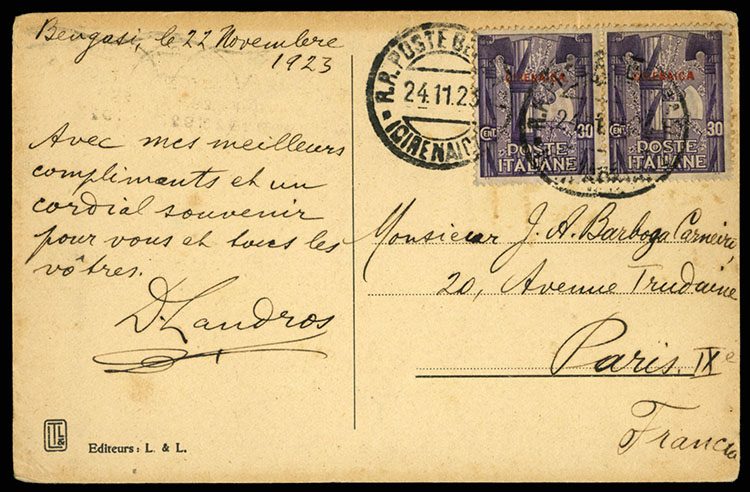 Bengasi, le 22 Novembre
1923
Avec mes meilleurs
compliments et un
cordial souvenir
pour vous et tous les
vôtres.
D. Landros
L & L
Editeurs: L. & L.
R.R. POSTE BE
24.11.23
(CIRENAICA
CIRENAICA
CENT 30
POSTE
ITALIANE
CIRENAICA
CENT 30
POSTE
ITALIANE
Monsieur J. A. Barboza Carneiro,
20, Avenue Trudaine
Paris. IXe
Francia